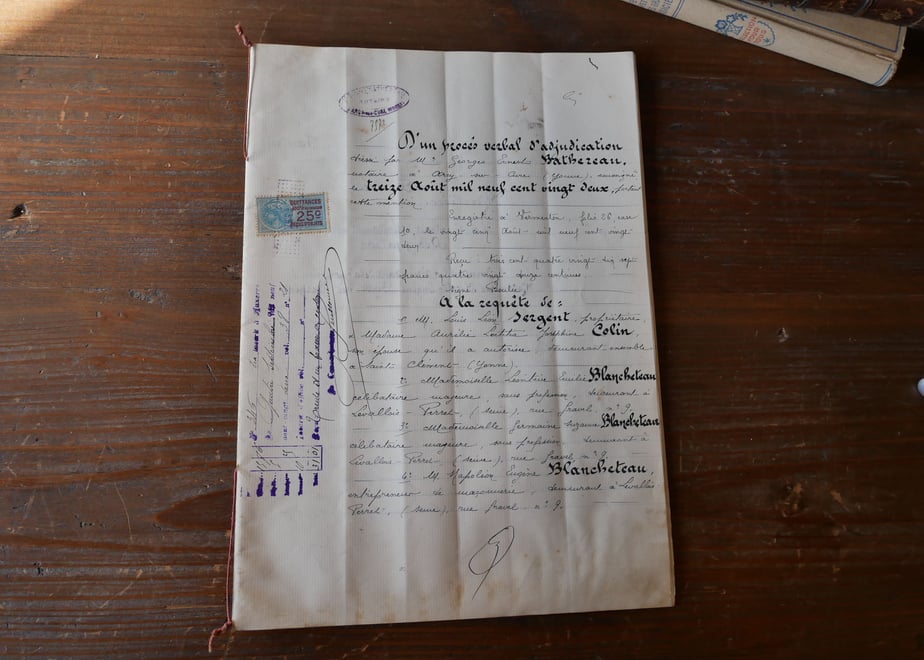 D'un procès verbal d'adjudication
dressé par Me Georges Ernest Bathereau,
notaire à Arcy-sur-Cure (Yonne), soussigné
le treize Août mil neuf cent vingt deux, portant
cette mention
Enregistré à Vermenton, folio 26 case
10, le vingt cinq Août mil neuf cent vingt
deux.
Reçu: trois cent quatre vingt dix sept
francs quatre vingt douze centimes.
Signé:
A la requête de:
M. Louis Léon Sergent, propriétaire,
Madame Aurélie Joséphine Colin
son épouse qu'il a autorisée, demeurant ensemble
à Saint Clément (Yonne).
2° Mademoiselle Emilie Blancheteau
célibataire majeure, sans profession, demeurant à
Levallois-Perret, (Seine), rue Gravel, n° 9.
3° Mademoiselle Germaine Suzanne Blancheteau
célibataire majeure, sans profession, demeurant à
Levallois-Perret (Seine), rue Gravel n° 9.
4° M. Napoléon Eugène Blancheteau,
entrepreneur de maçonnerie, demeurant à Levallois-
Perret, (Seine), rue Gravel n° 9.
NOTAIRE
7970
QUITTANCES
25c